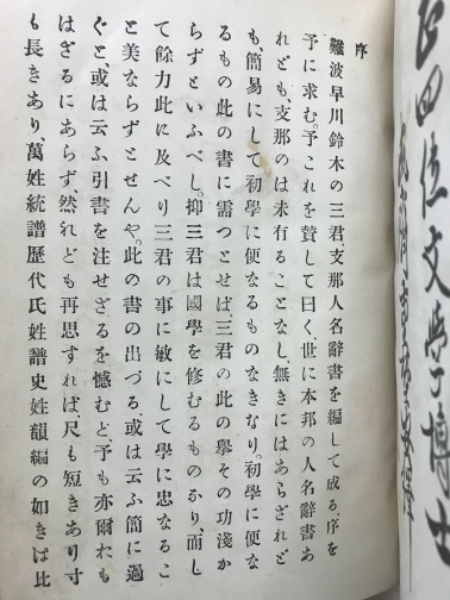 序
難波早川鈴木の三君、支那人名辭書を編して成る、序を
予に求む。予これを賛して曰く、世に本邦の人名辭書あ
れども、支那のは未有ることなし、無きにはあらざれど
も、簡易にして初學に便なるものなきなり。初學に便な
るもの此の書に需つとせば、三君の此の擧その功淺か
らずといふべし。抑三君は國學を修むるものなり、而し
て餘力此に及べり三君の事に敏にして學に忠なるこ
と美ならずとせんや。此の書の出づる、或は云ふ簡に過
ぐと、或は云ふ引書を注せざるを憾むと、予も亦爾れも
はざるにあらず、然れども再思すれば、尺も短きあり寸
も長きあり、萬姓統譜歷代氏姓譜史姓韻編の如きは比
四位文學博士